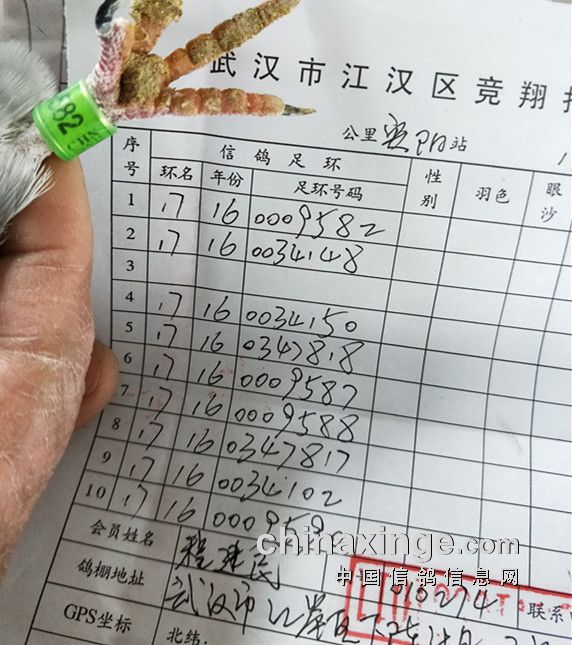 武汉市江汉区竞翔
82
CHN
公里 安阳 站
序号 信鸽足环 性别 羽色 眼沙
环名 年份 足环号码
1 17 16 0009582
2 17 16 0034148
3
4 17 16 0034150
5 17 16 0347818
6 17 16 0009587
7 17 16 0009588
8 17 16 0347817
9 17 16 0034102
10 17 16 000959
会员姓名 程建民
chinaxinge.com
中国信鸽信息网
鸽棚地址 武汉市江岸区
010274 联系
GPS坐标 北纬: